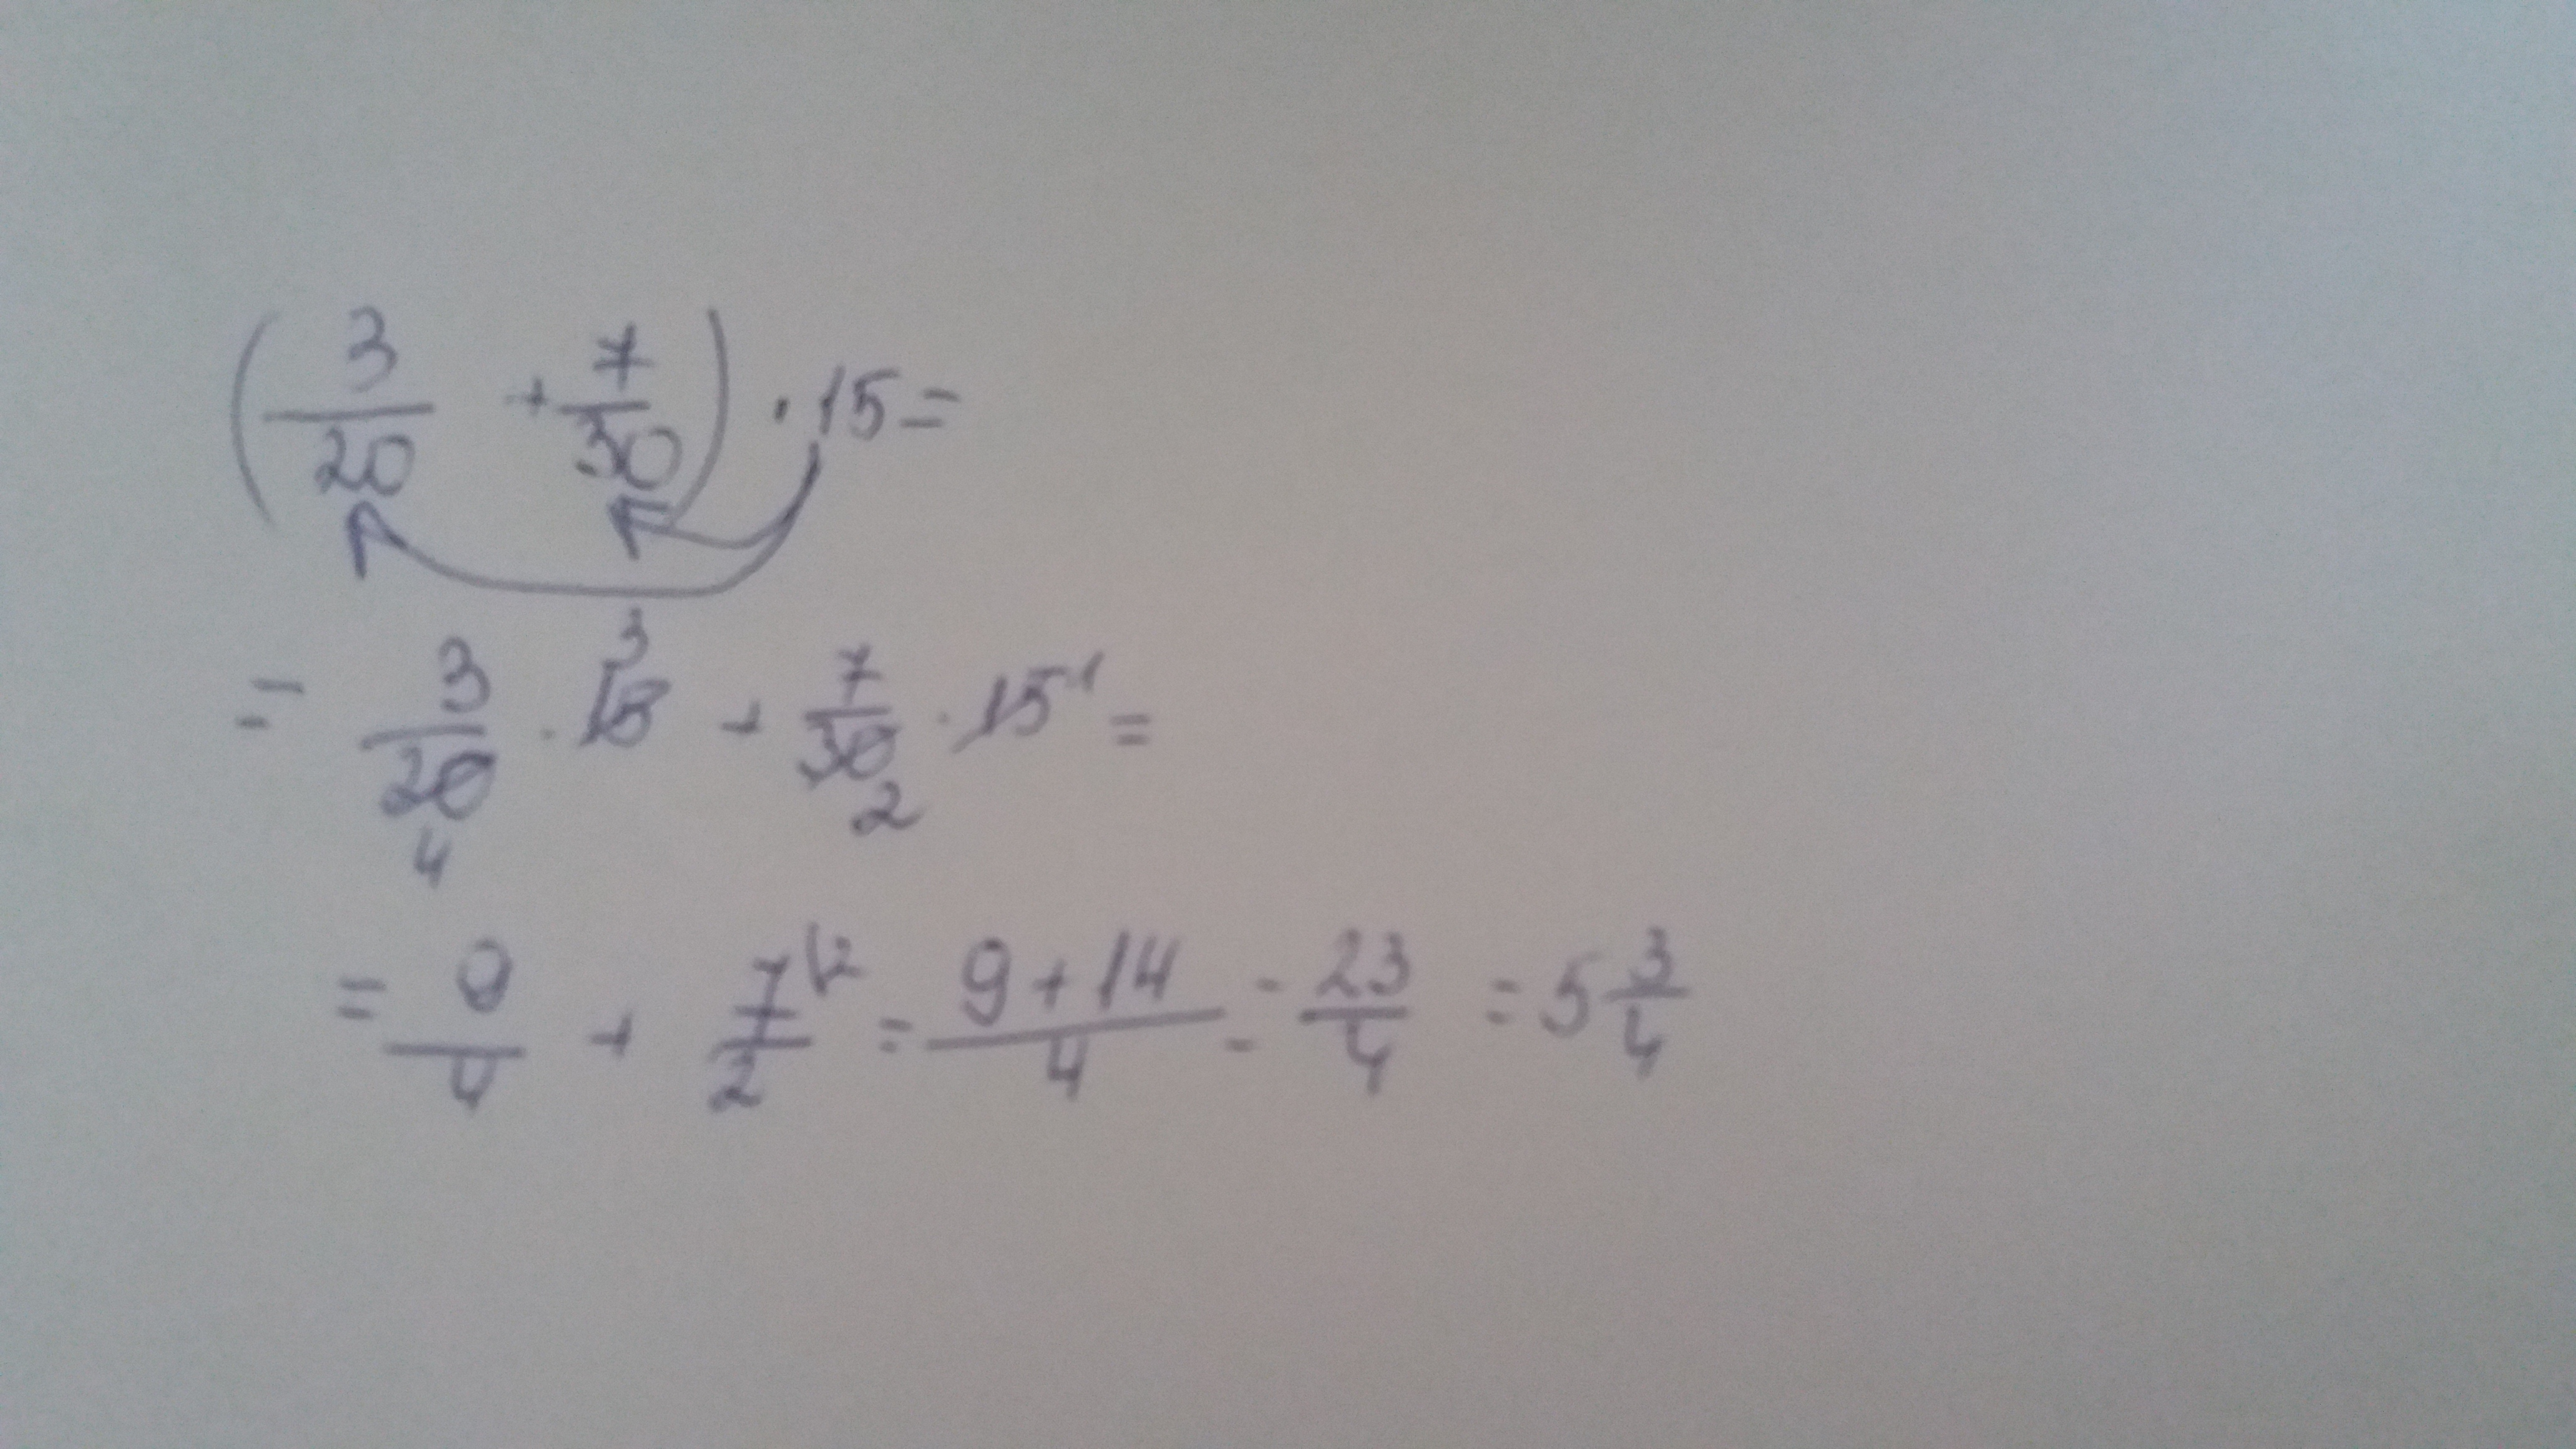 (3/20 + 7/30) · 15 =
= 3/20 4 · 15 3 + 7/30 2 · 15 1 =
= 9/4 + 7/2 \2 = (9 + 14)/4 = 23/4 = 5 3/4